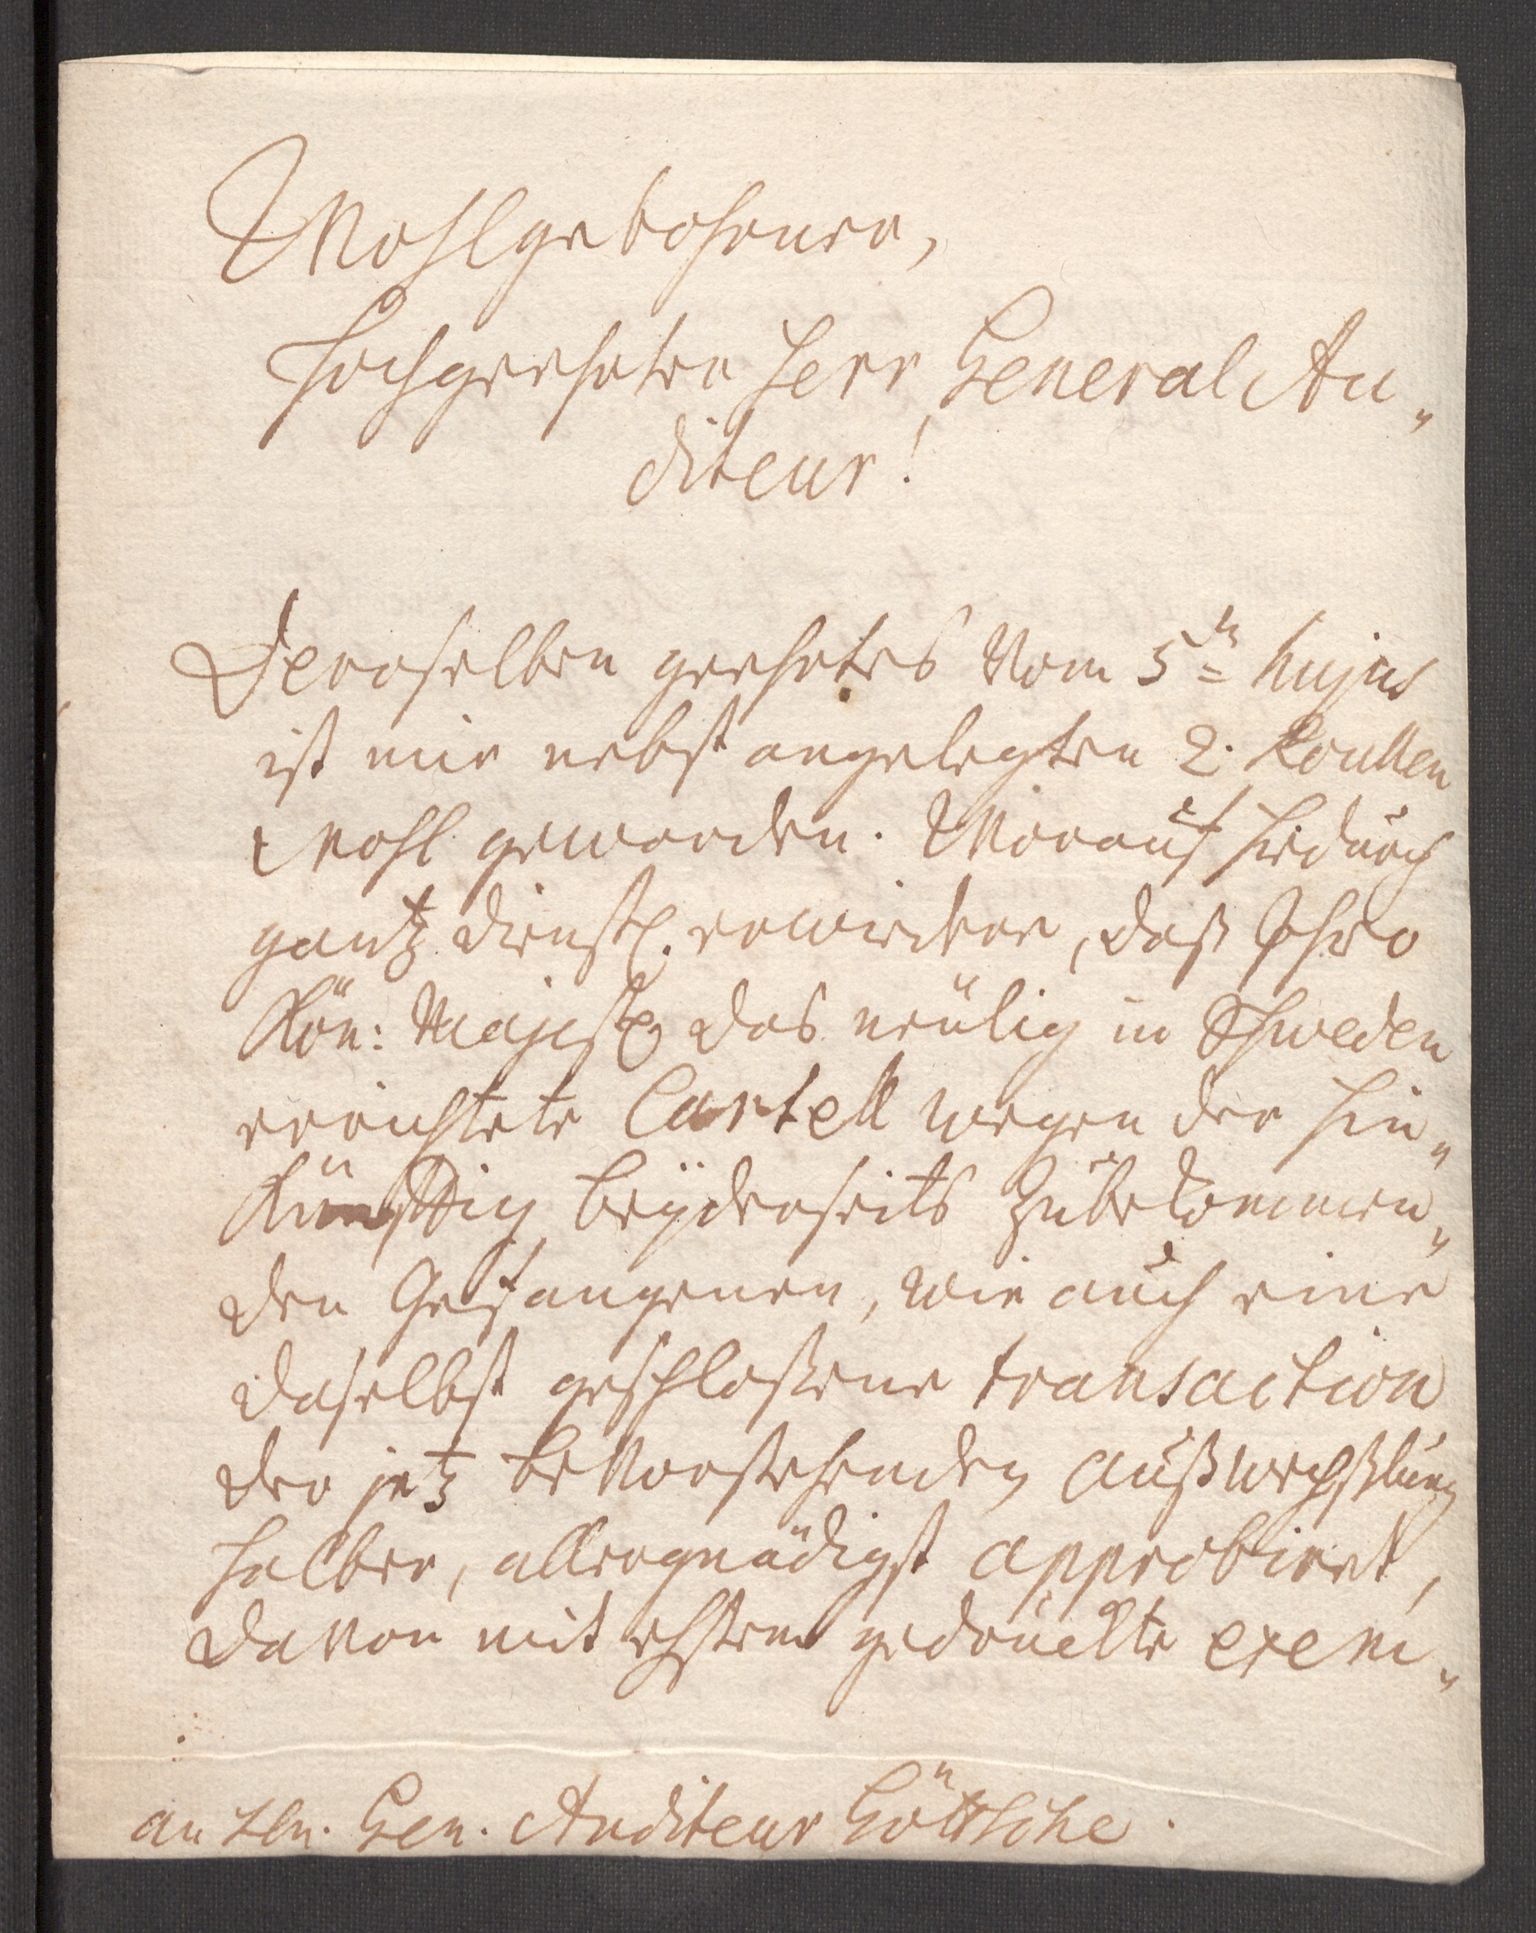 Wohlgebohrner,
Hochgeehrter Herr General Au„
diteur!
Deroselben geehrtes vom 5ten hujus
ist mir nebst angelegten 2. Roullen
wohl geworden. Worauf hiedurch
gantz dienstl. erwiedere, daß Ihro
Kön: Majest. das neülig in Schweden
errichtete Cartell wegen der hin„
künfftig beÿderseits zubekommen„
den Gefangenen, wie auch eine
daselbst geschloßene transaction
der jetz bevorstehenden Außwechßlung
halber, allergnädigst approbiret,
davon mit ehsten gedruckte exem„
an Hln. Gen. Auditeur Göttsche.